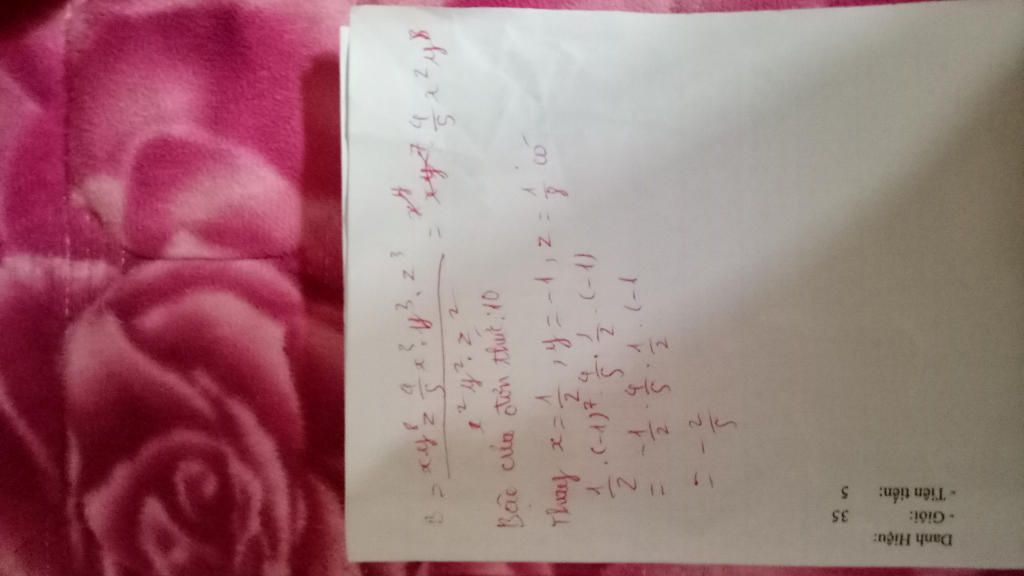 B = xy⁸z 4/5 x² . y³ . z³ / x² y² . z² = xy xy⁷ . 4/5 x² y⁸
Bậc của đơn thức : 10
Thay x = 1/2 , y = -1 , z = 1/8 có
1/2 . (-1)⁷ . 4/5 . 1/2 . (-1)
= -1/2 . 4/5 . 1/2 . (-1
= - 2/5
Danh Hiệu:
- Giỏi: 35
- Tiên tiến: 5